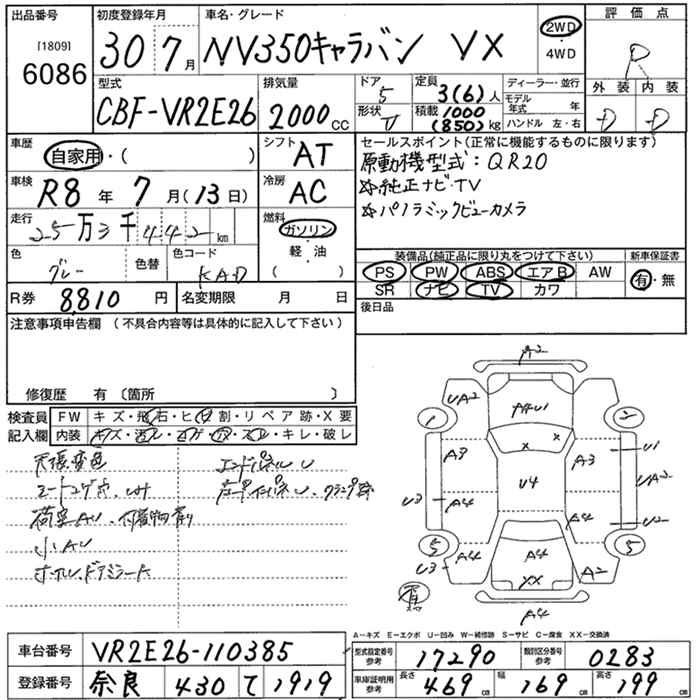 出品番号
[1809]
6086
初度登録年月
30年7月
車名・グレード
NV350キャラバン VX
2WD
・
4WD
評価点
R
外装 内装
D D
型式
CBF-VR2E26
排気量
2000cc
ドア
5
形状
V
定員
3(6)人
積載 1000
(850)kg
ディーラー・並行
モデル年式 年
ハンドル 左・右
車歴
自家用・( )
シフト
AT
車検
R8年7月(13日)
冷房
AC
走行
25万3千442km
燃料
ガソリン
・
軽・油
( )
色
グレー
色替
色コード
KAD
R券 8,810円
名変期限 月 日
セールスポイント(正常に機能するものに限ります)
原動機型式:QR20
☆純正ナビ・TV
☆パノラミックビューカメラ
装備品(純正品に限り丸をつけて下さい)
PS PW ABS エアB AW
SR ナビ TV カワ
新車保証書
有・無
後日品
注意事項申告欄(不具合内容等は具体的に記入して下さい)
修復歴 有〔箇所 〕
検査員
記入欄
FW キズ・飛石・ヒビ割・リペア跡・X要
内装 キズ・汚レ・コゲ・穴・スレ・キレ・破レ
天張変色
荷室AU、付着物有り
小AU
エンドパネルU
A2
UA2
1
2
AAU1
X X
A3
A3
U1
UA2
U4
U3
A4
A4
U2
5
5
U3
A4
A4
XX
A2
A4
A-キズ E-エクボ U-凹み W-補修跡 S-サビ C-腐食 XX-交換済
車台番号 VR2E26-110385
登録番号 奈良 430 て 1919
型式指定番号
参考
17290
類別区分番号
参考
0283
車庫証明用
参考
長さ 469cm
幅 169cm
高さ 199cm